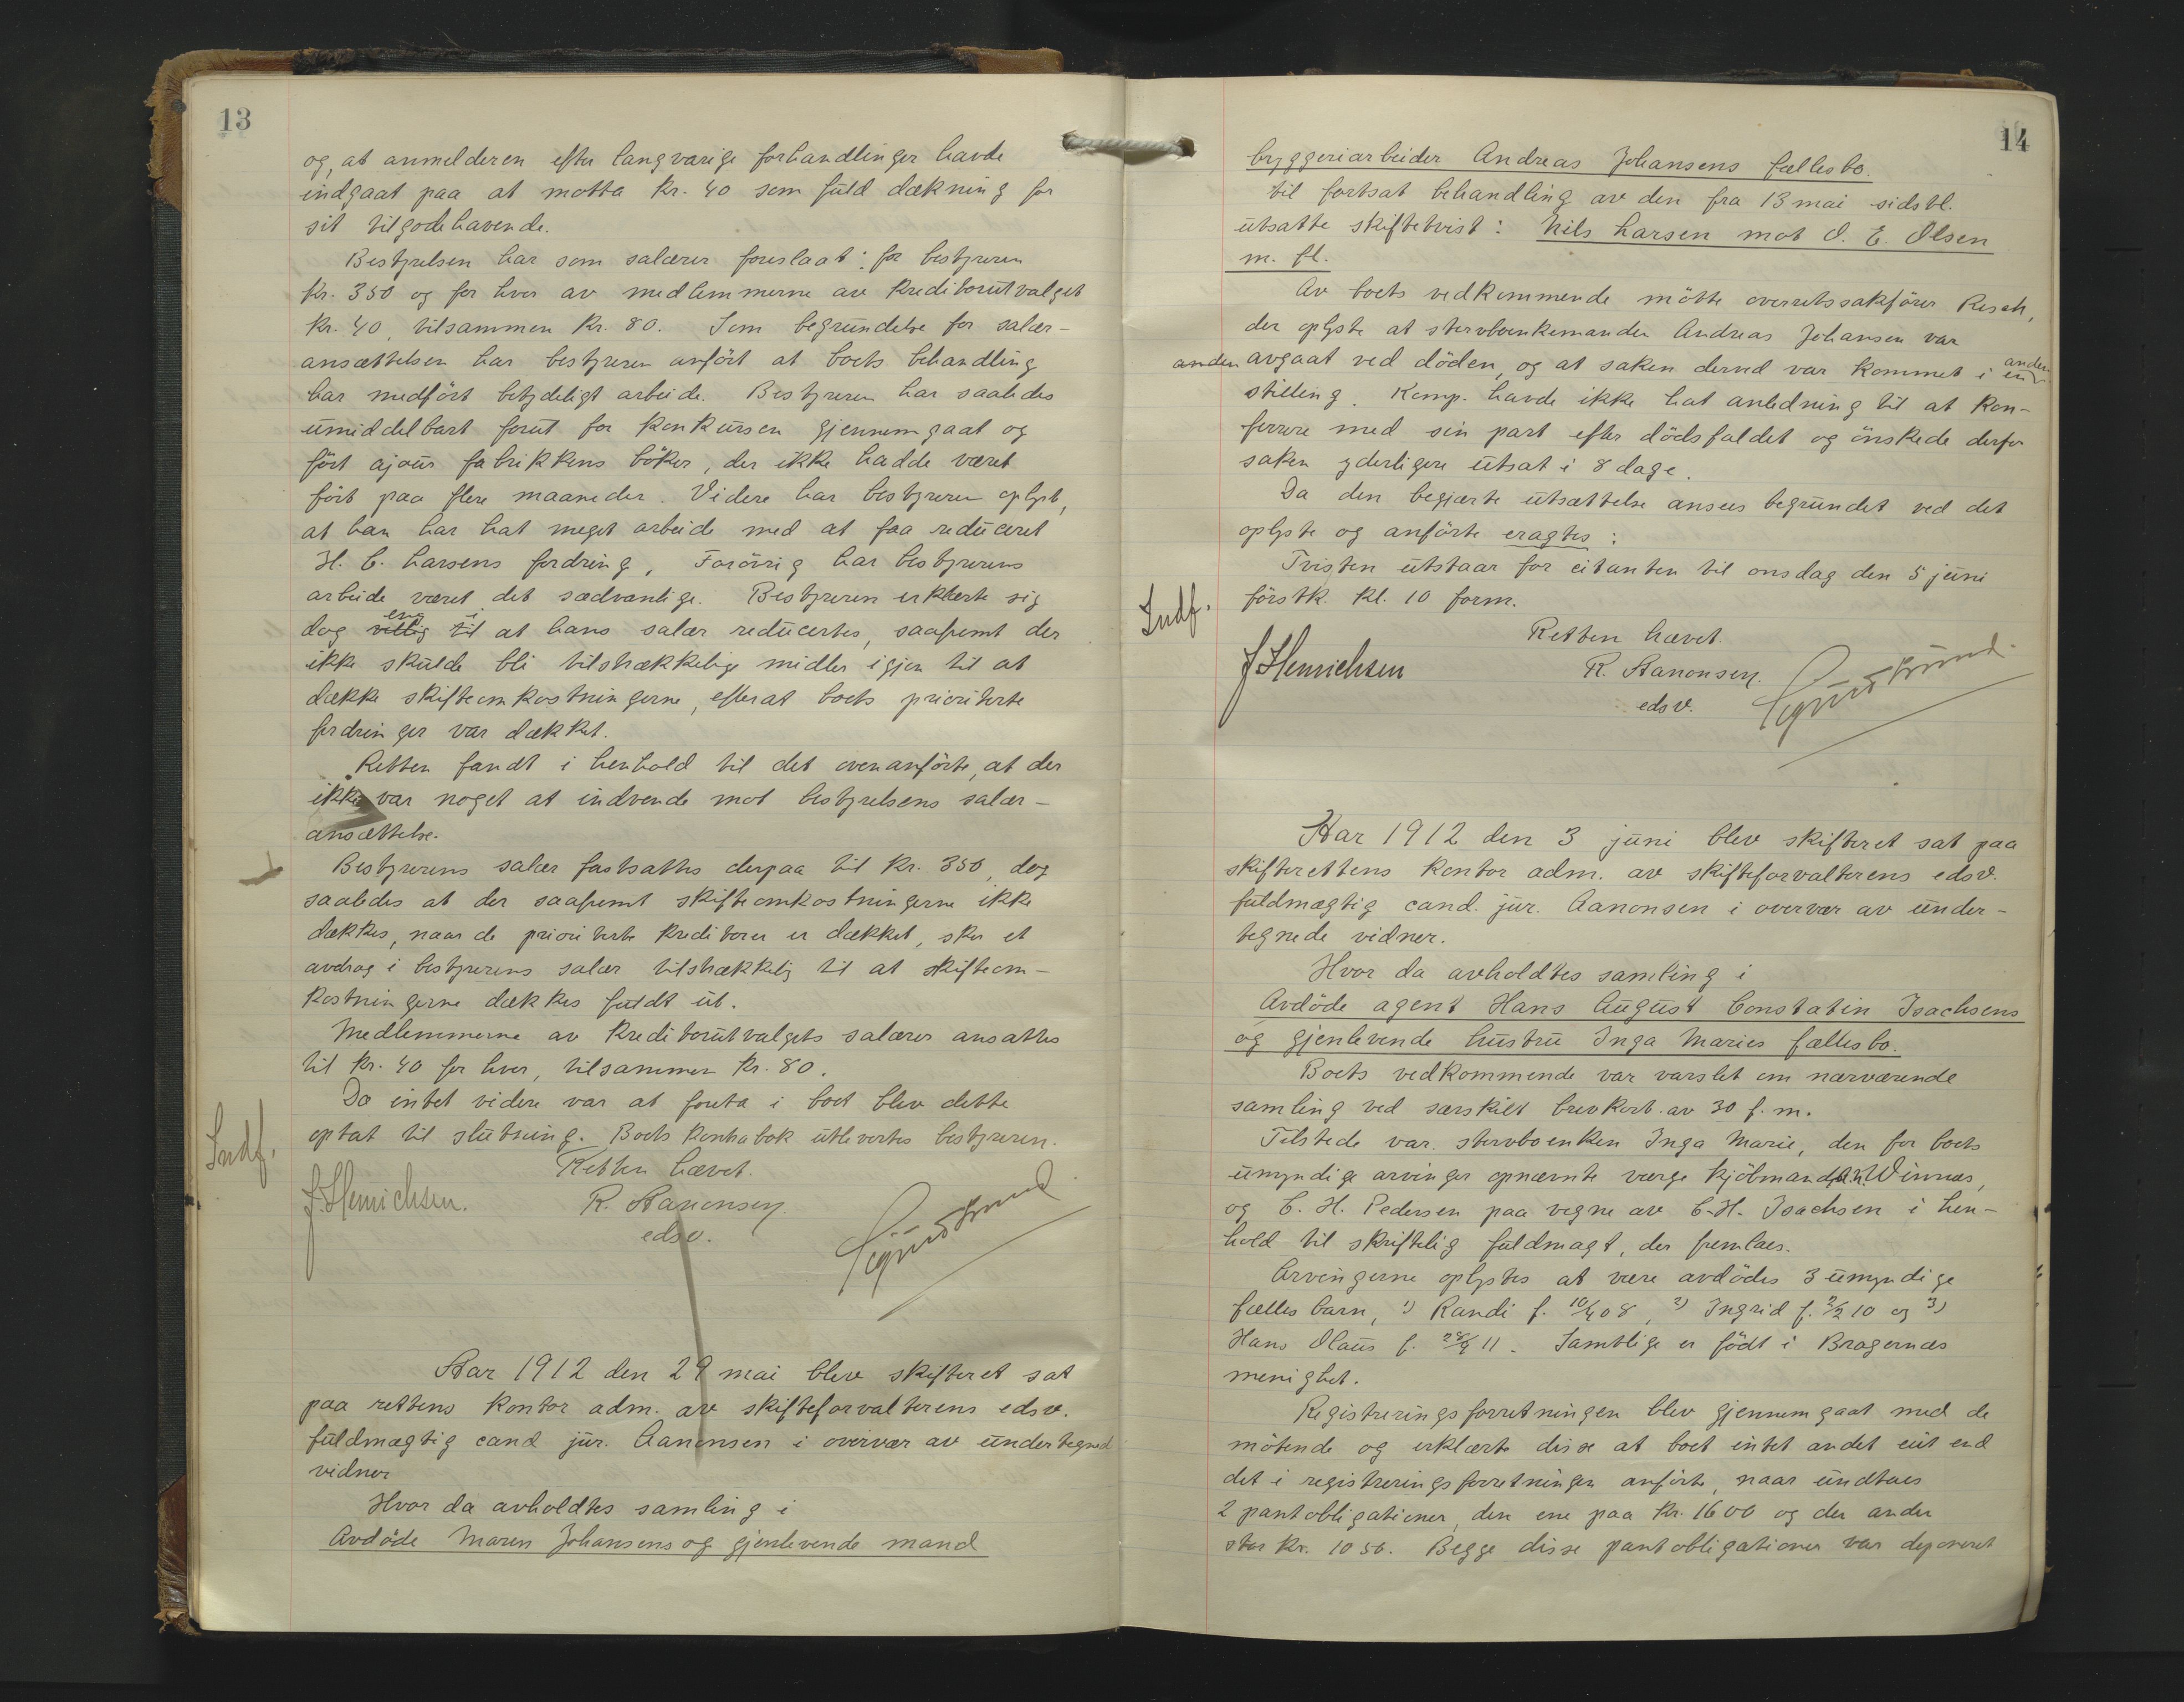 13
og, at anmelderen efter langvarige forhandlinger havde
indgaat paa at motta Kr. 40 som fuld dækning for
sit tilgodehavende.
Bestyrelsen har som salærer foreslaat: for bestyreren
Kr. 350 og for hver av medlemmerne av Kreditorutvalget
Kr. 40, tilsammen Kr. 80. Som begrundelse for salær-
ansættelsen har bestyreren anført at boets behandling
har medført betydeligt arbeide. Bestyreren har saaledes
umiddelbart forut for Konkursen gjennemgaat og
ført ajour fabrikkens bøker, der ikke hadde været
ført paa flere maaneder. Videre har bestyreren oplyst,
at han har hat meget arbeide med at faa reduceret
H. C. Larsens fordring, Forøvrig har bestyrerens
arbeide været det sædvanlige. Bestyreren erklærte sig
enig i
dog villig til at hans salær reducertes, saafremt der
ikke skulde bli tilstrækkelige midler igjen til at
dække skifteomkostningerne, efterat boets prioriterte
fordringer var dækket.
Retten fandt i henhold til det ovenanførte, at der
ikke var noget at indvende mot bestyrelsens salær-
ansættelse.
Bestyrerens salær fastsattes derpaa til Kr. 350, dog
saaledes at der saafremt skifteomkostningerne ikke
dækkes, naar de prioriterte Kreditorer er dækket, sker et
avdrag i bestyrerens salær tilstrækkelig til at skifteom-
kostningerne dækkes fuldt ut.
Medlemmerne av Kreditorutvalgets salærer ansattes
til Kr. 40 for hver, tilsammen Kr. 80.
Da intet videre var at foreta i boet blev dette
optat til slutning. Boets Kontrabok utlevertes bestyreren.
Indf.
Retten hævet.
J. Henrichsen.
R. Aanonsen.
edsv.
Aar 1912 den 29 mai blev skifteret sat
paa rettens Kontor adm. av skifteforvalterens edsv.
fuldmægtig cand. jur. Aanonsen i overvær av undertegned
vidner
Hvor da avholdtes samling i
Avdøde Maren Johansens og gjenlevende mand
14
bryggeriarbeider Andreas Johansens fællesbo.
til fortsat behandling av den fra 13 mai sidstl.
utsatte skiftetvist: Nils Larsen mot O. E. Olsen
m. fl.
Av boets vedkommende møtte overretssakfører Resch,
der oplyste at stervboenkemanden Andreas Johansen var
anden
avgaat ved døden, og at saken derved var kommet i en
anden
stilling. Komp. havde ikke hat anledning til at kon-
ferere med sin part efter dødsfaldet og ønskede derfor
saken yderligere utsat i 8 dage.
Da den begjærte utsættelse ansees begrundet ved det
oplyste og anførte eragtes:
Tvisten utstaar for citanten til onsdag den 5 juni
førstk. Kl. 10 form.
Indf.
Retten hævet.
J Henrichsen
R. Aanonsen.
edsv.
Aar 1912 den 3 juni blev skifteret sat paa
skifterettens Kontor adm. av skifteforvalterens edsv.
fuldmægtig cand. jur. Aanonsen i overvær av under-
tegnede vidner.
Hvor da avholdtes samling i
Avdøde agent Hans August Constatin Isachsens
og gjenlevende hustru Inga Maries fællesbo.
Boets vedkommende var varslet om nærværende
samling ved særskilt brevkort av 30 f. m.
Tilstede var stervboenken Inga Marie, den for boets
umyndige arvinger opnævnte værge kjøbmand Winnæs,
og C. H. Pedersen paa vegne av C. H. Isachsen i hen-
hold til skriftelig fuldmagt, der fremlaes.
Arvingerne oplystes at være avdødes 3 umyndige
fælles barn, 1) Randi f. 10/4 08, 2) Ingrid f. 2/2 10 og 3)
Hans Olaus f. 28/9 11. Samtlige er født i Bragernæs
menighet.
Registreringsforretningen blev gjennemgaat med de
møtende og erklærte disse at boet intet andet eiet end
det i registreringsforretningen anførte, naar undtaes
2 pantobligationer, den ene paa Kr. 1600 og den anden
stor Kr. 1050. Begge disse pantobligationer var deponeret